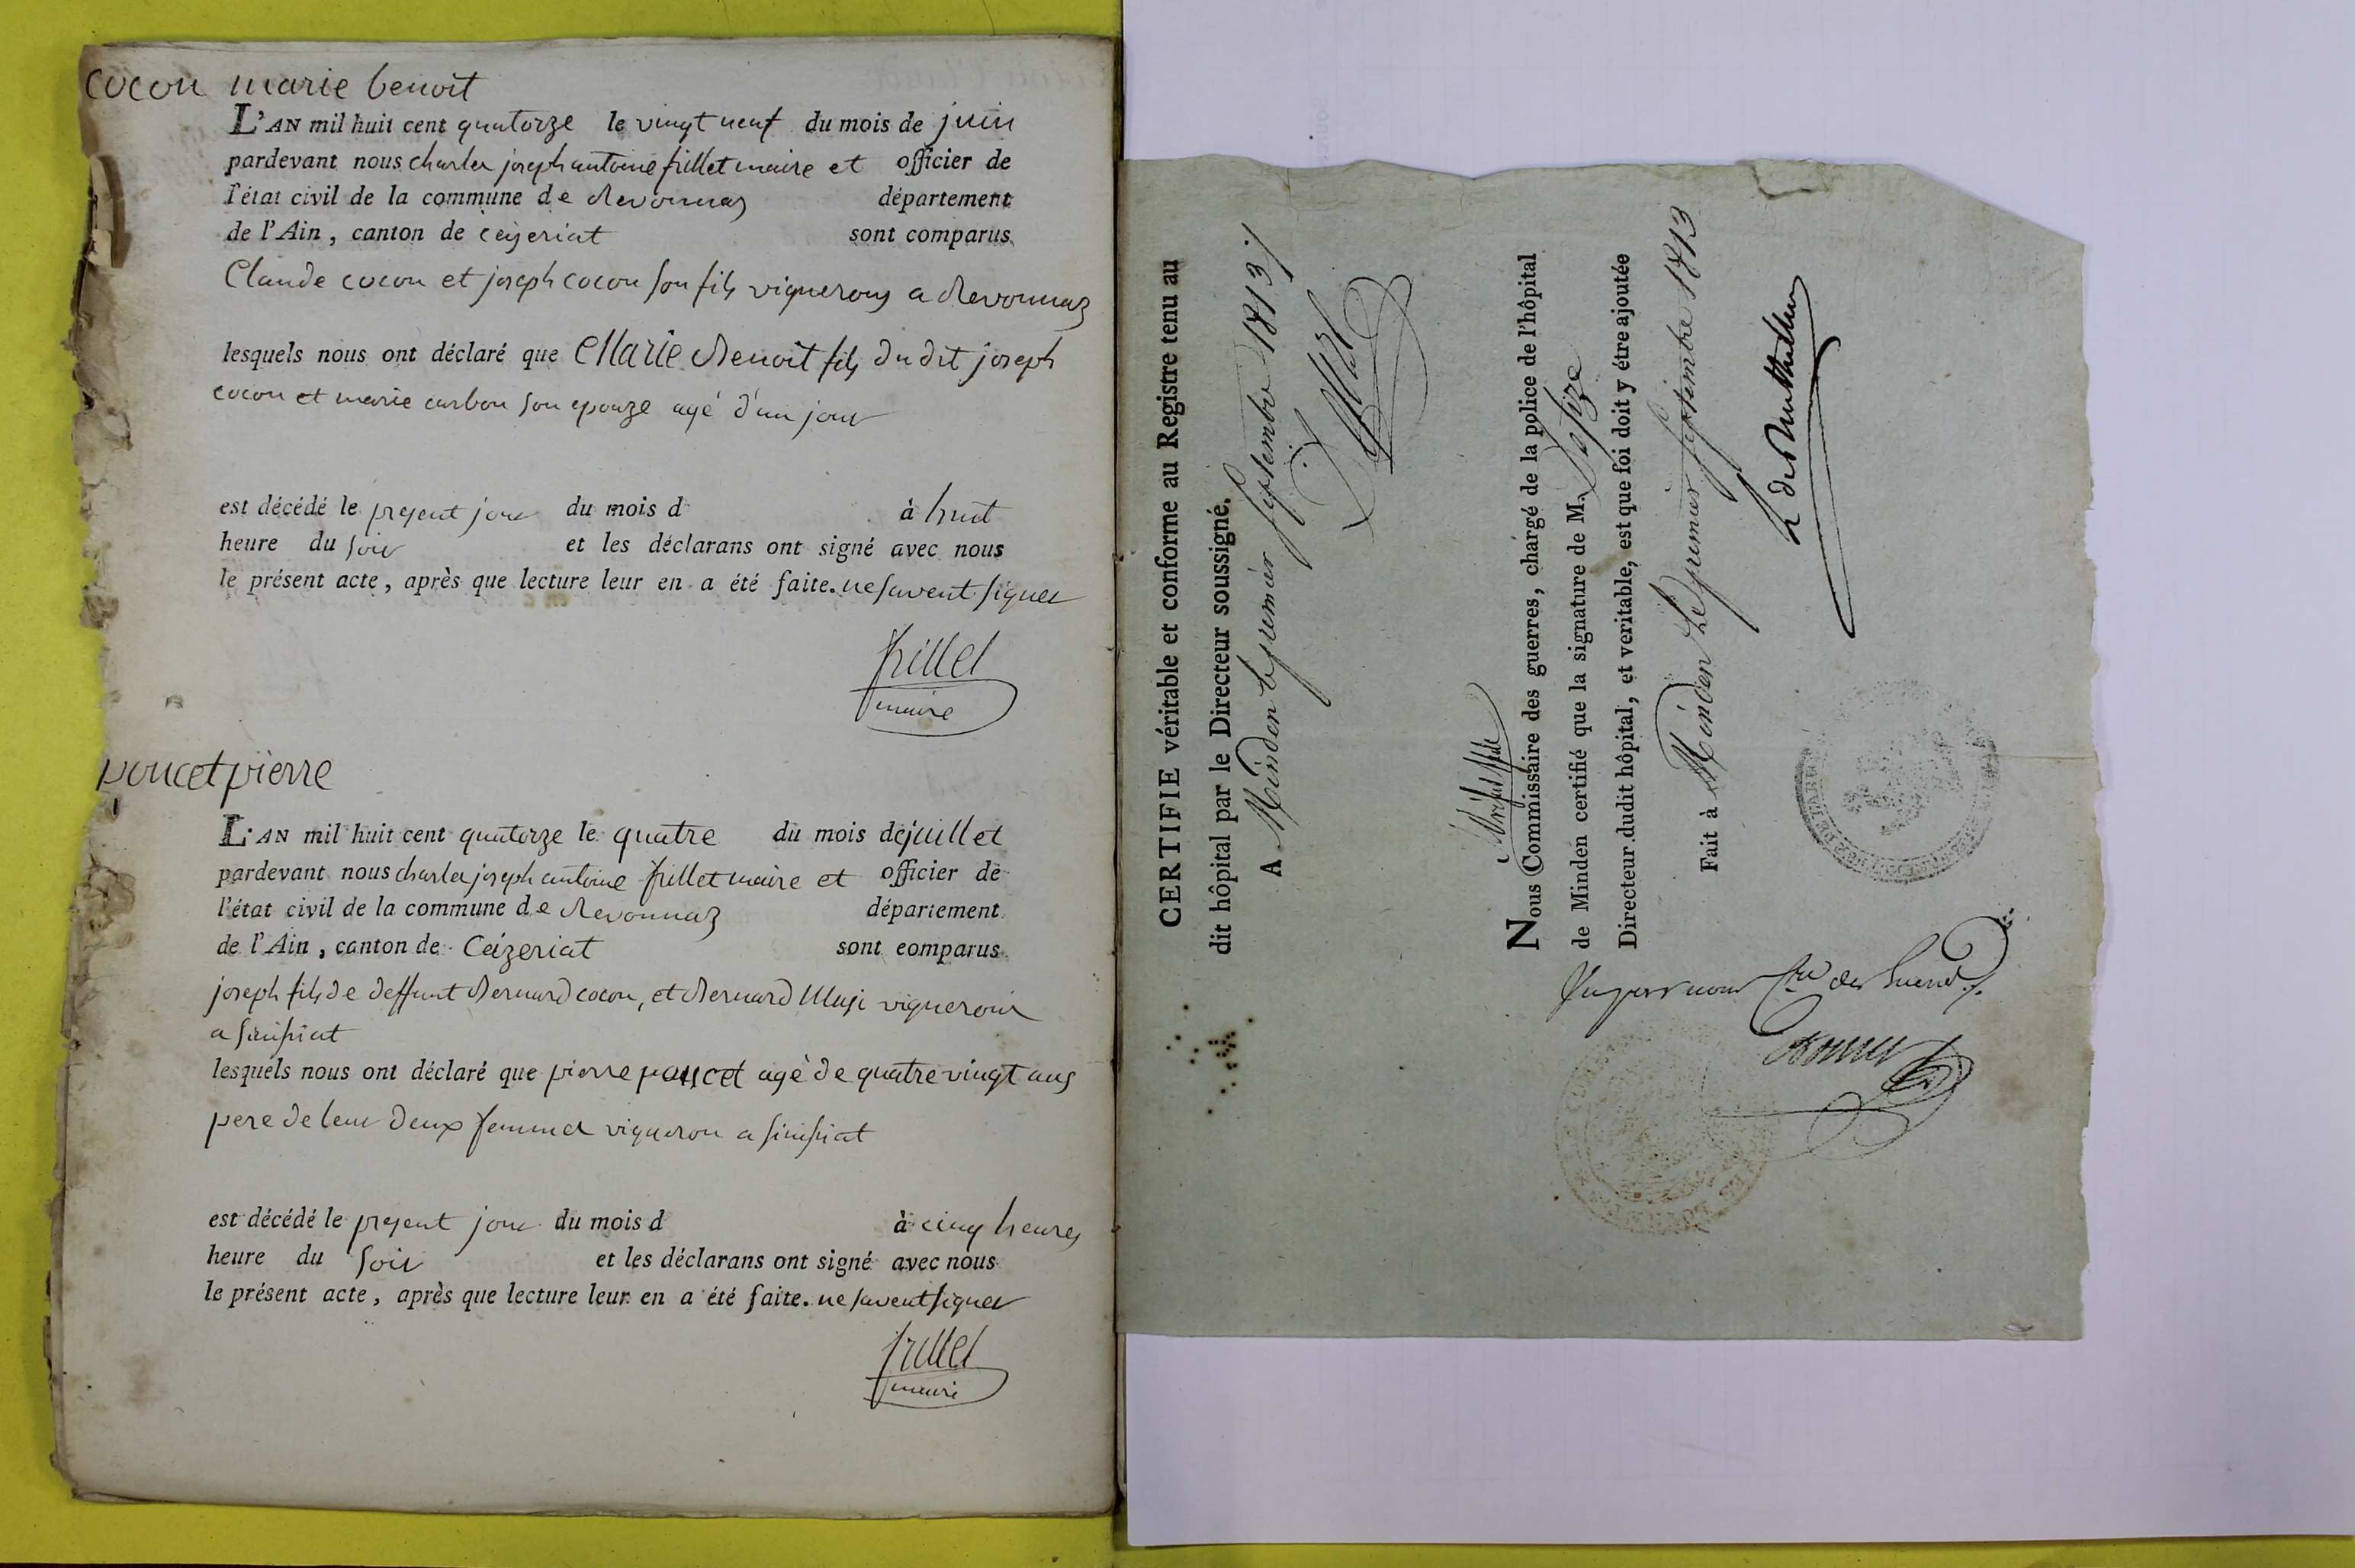 cocon marie benoit
L'AN mil huit cent quatorze le vingt neuf du mois de juin
pardevant nous charles joseph antoine frillet maire et officier de
l'état civil de la commune de Revonnaz département
de l'Ain, canton de ceyzeriat sont comparus
Claude cocon et joseph cocon son fils vignerons a Revonnaz
lesquels nous ont déclaré que Marie Benoit fils du dit joseph
cocon et marie carbon son epouze agé d'un jour
est décédé le present jour du mois d à huit
heure du soir et les déclarans ont signé avec nous
le présent acte, après que lecture leur en a été faite. ne savent signer
frillet
maire
poncet pierre
L'AN mil huit cent quatorze le quatre du mois de juillet
pardevant nous charles joseph antoine frillet maire et officier de
l'état civil de la commune de Revonnaz département
de l'Ain, canton de Ceizeriat sont comparus
joseph fils de deffunt Bernard cocon, et Bernard vignerons
a
lesquels nous ont déclaré que pierre poncet agé de quatre vingt ans
pere de leur deux femmes vigneron a
est décédé le present jour du mois d à cinq heures
heure du soir et les déclarans ont signé avec nous
le présent acte, après que lecture leur en a été faite. ne savent signer
frillet
maire
CERTIFIE véritable et conforme au Registre tenu au
dit hôpital par le Directeur soussigné.
A Minden le premier septembre 1813
Nous Commissaire des guerres, chargé de la police de l'hôpital
de Minden certifié que la signature de M.
Directeur dudit hôpital, et veritable, est que foi doit y étre ajoutée
Fait à Minden Le premier septembre 1813